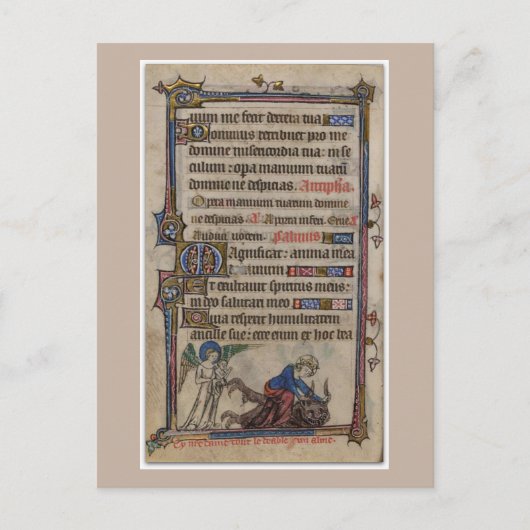 uum me fecit dextera tua
Dominus retribuet pro me
domine misericordia tua: in se
culum: opa manuum tuarū
domine ne despicias. Antipha.
Opera manuum tuarum domine
ne despicias. A porta inferi. Erue
Audiui uocem. psalmus
Magnificat: anima mea
dominum
Et exultauit spiritus meus:
in deo salutari meo
Quia respexit humilitatem
ancille sue: ecce enim ex hoc bea
Cy nre dame tout le deable